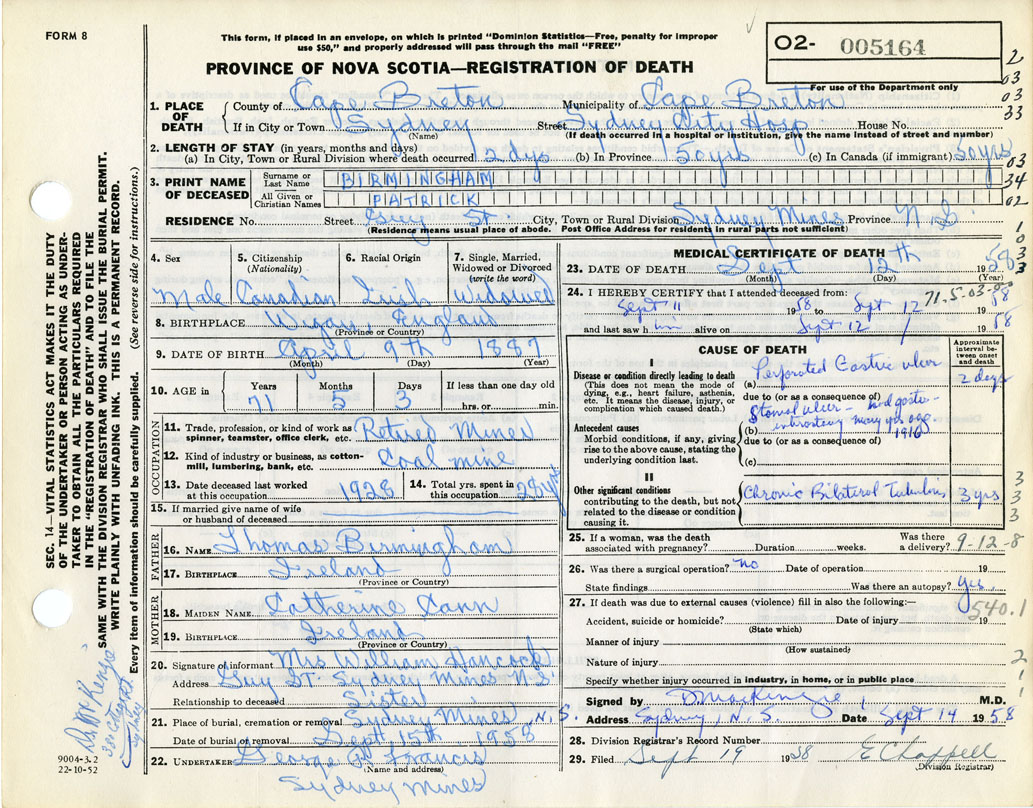 FORM 8
This form, if placed in an envelope, on which is printed "Dominion Statistics—Free, penalty for improper
use $50," and properly addressed will pass through the mail "FREE"
02- 005164
For use of the Department only
PROVINCE OF NOVA SCOTIA—REGISTRATION OF DEATH
1. PLACE OF DEATH { County of Cape Breton Municipality of Cape Breton
If in City or Town Sydney Street Sydney City Hosp House No.
(Name) (If death occurred in a hospital or institution, give the name instead of street and number)
2. LENGTH OF STAY (in years, months and days)
(a) In City, Town or Rural Division where death occurred 2 dys (b) In Province 50 yrs (c) In Canada (if immigrant) 50 yrs
3. PRINT NAME OF DECEASED { Surname or Last Name BIRMINGHAM
All Given or Christian Names PATRICK
RESIDENCE No. Street Guy St. City, Town or Rural Division Sydney Mines Province N.S.
(Residence means usual place of abode. Post Office Address for residents in rural parts not sufficient)
4. Sex Male
5. Citizenship (Nationality) Canadian
6. Racial Origin Irish
7. Single, Married, Widowed or Divorced (write the word) Widowed
8. BIRTHPLACE Wigan, England
(Province or Country)
9. DATE OF BIRTH April 9th 1887
(Month) (Day) (Year)
10. AGE in Years 71 Months 5 Days 3 If less than one day old hrs. or min.
OCCUPATION
11. Trade, profession, or kind of work as spinner, teamster, office clerk, etc. Retired Miner
12. Kind of industry or business, as cotton-mill, lumbering, bank, etc. Coal mine
13. Date deceased last worked at this occupation 1928
14. Total yrs. spent in this occupation 28 yrs
15. If married give name of wife or husband of deceased
FATHER
16. NAME Thomas Birmingham
17. BIRTHPLACE Ireland
(Province or Country)
MOTHER
18. MAIDEN NAME Catherine
19. BIRTHPLACE Ireland
(Province or Country)
20. Signature of informant Mrs William Hancock
Address Guy St. Sydney Mines N.S.
Relationship to deceased Sister
21. Place of burial, cremation or removal Sydney Mines, N.S.
Date of burial or removal Sept 15th 1958
22. UNDERTAKER George Francis
(Name and address)
Sydney Mines
MEDICAL CERTIFICATE OF DEATH
23. DATE OF DEATH Sept 12th 1958
(Month) (Day) (Year)
24. I HEREBY CERTIFY that I attended deceased from:
Sept 11 1958 to Sept 12 1958
71-5-03
and last saw him alive on Sept 12 1958
CAUSE OF DEATH
Approximate interval between onset and death
I
Disease or condition directly leading to death
(This does not mean the mode of dying, e.g., heart failure, asthenia, etc. It means the disease, injury, or complication which caused death.)
(a) Perforated Gastric ulcer 2 days
due to (or as a consequence of)
Antecedent causes
Morbid conditions, if any, giving rise to the above cause, stating the underlying condition last.
(b) Stomal ulcer - had gastro-enterostomy many yrs ago. (1916)
due to (or as a consequence of)
(c)
II
Other significant conditions
contributing to the death, but not related to the disease or condition causing it.
Chronic Bilateral Tuberculosis 3 yrs
25. If a woman, was the death associated with pregnancy? Duration weeks. Was there a delivery? 9-12-8
26. Was there a surgical operation? no Date of operation 19
State findings Was there an autopsy? yes
27. If death was due to external causes (violence) fill in also the following:—
540.1
Accident, suicide or homicide? Date of injury 19
(State which)
Manner of injury
(How sustained)
Nature of injury
Specify whether injury occurred in industry, in home, or in public place
Signed by D. MacKenzie M.D.
Address Sydney, N.S. Date Sept 14 1958
28. Division Registrar's Record Number
29. Filed Sept 19 1958 E Chappell
(Division Registrar)
SEC. 14—VITAL STATISTICS ACT MAKES IT THE DUTY
OF THE UNDERTAKER OR PERSON ACTING AS UNDER-
TAKER TO OBTAIN ALL THE PARTICULARS REQUIRED
IN THE "REGISTRATION OF DEATH" AND TO FILE THE
SAME WITH THE DIVISION REGISTRAR WHO SHALL ISSUE THE BURIAL PERMIT.
WRITE PLAINLY WITH UNFADING INK. THIS IS A PERMANENT RECORD.
Every item of information should be carefully supplied. (See reverse side for instructions.)
Dr. McKenzie
Sydney
9004-3.2
22-10-52
2
03
03
33
03
34
02
1
0
3
3
3
3
3
2
1